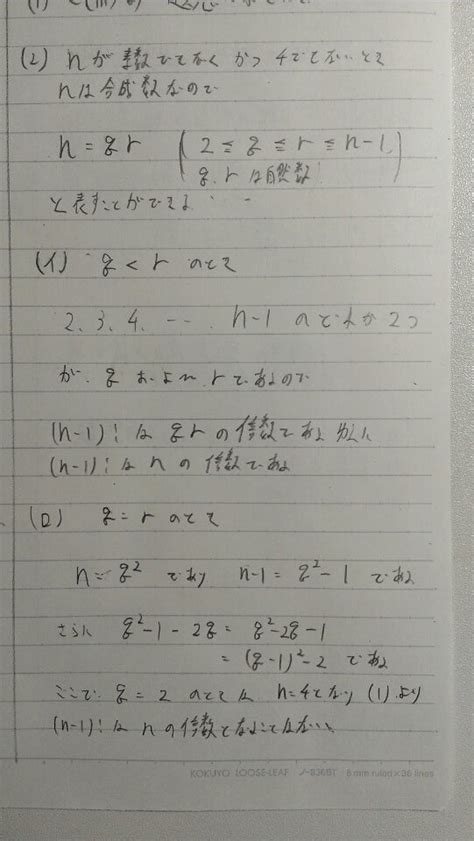 (2) nが素数でもなく かつ 4でもないとき
nは合成数なので
n = qr (2 ≦ q ≦ r ≦ n-1, q, rは自然数)
と表すことができる.
(イ) q < r のとき
2, 3, 4, ……, n-1 のどれか2つ
が, q および rであるので
(n-1)! は qr の倍数である ゆえに
(n-1)! は n の倍数である
(ロ) q = r のとき
n = q² であり n-1 = q²-1 である
さらに q²-1-2q = q²-2q-1
= (q-1)²-2 である
ここで q = 2 のときは n=4となり (1)より
(n-1)! は n の倍数となることはない.
KOKUYO LOOSE-LEAF ノ-836BT 6 mm ruled × 36 lines